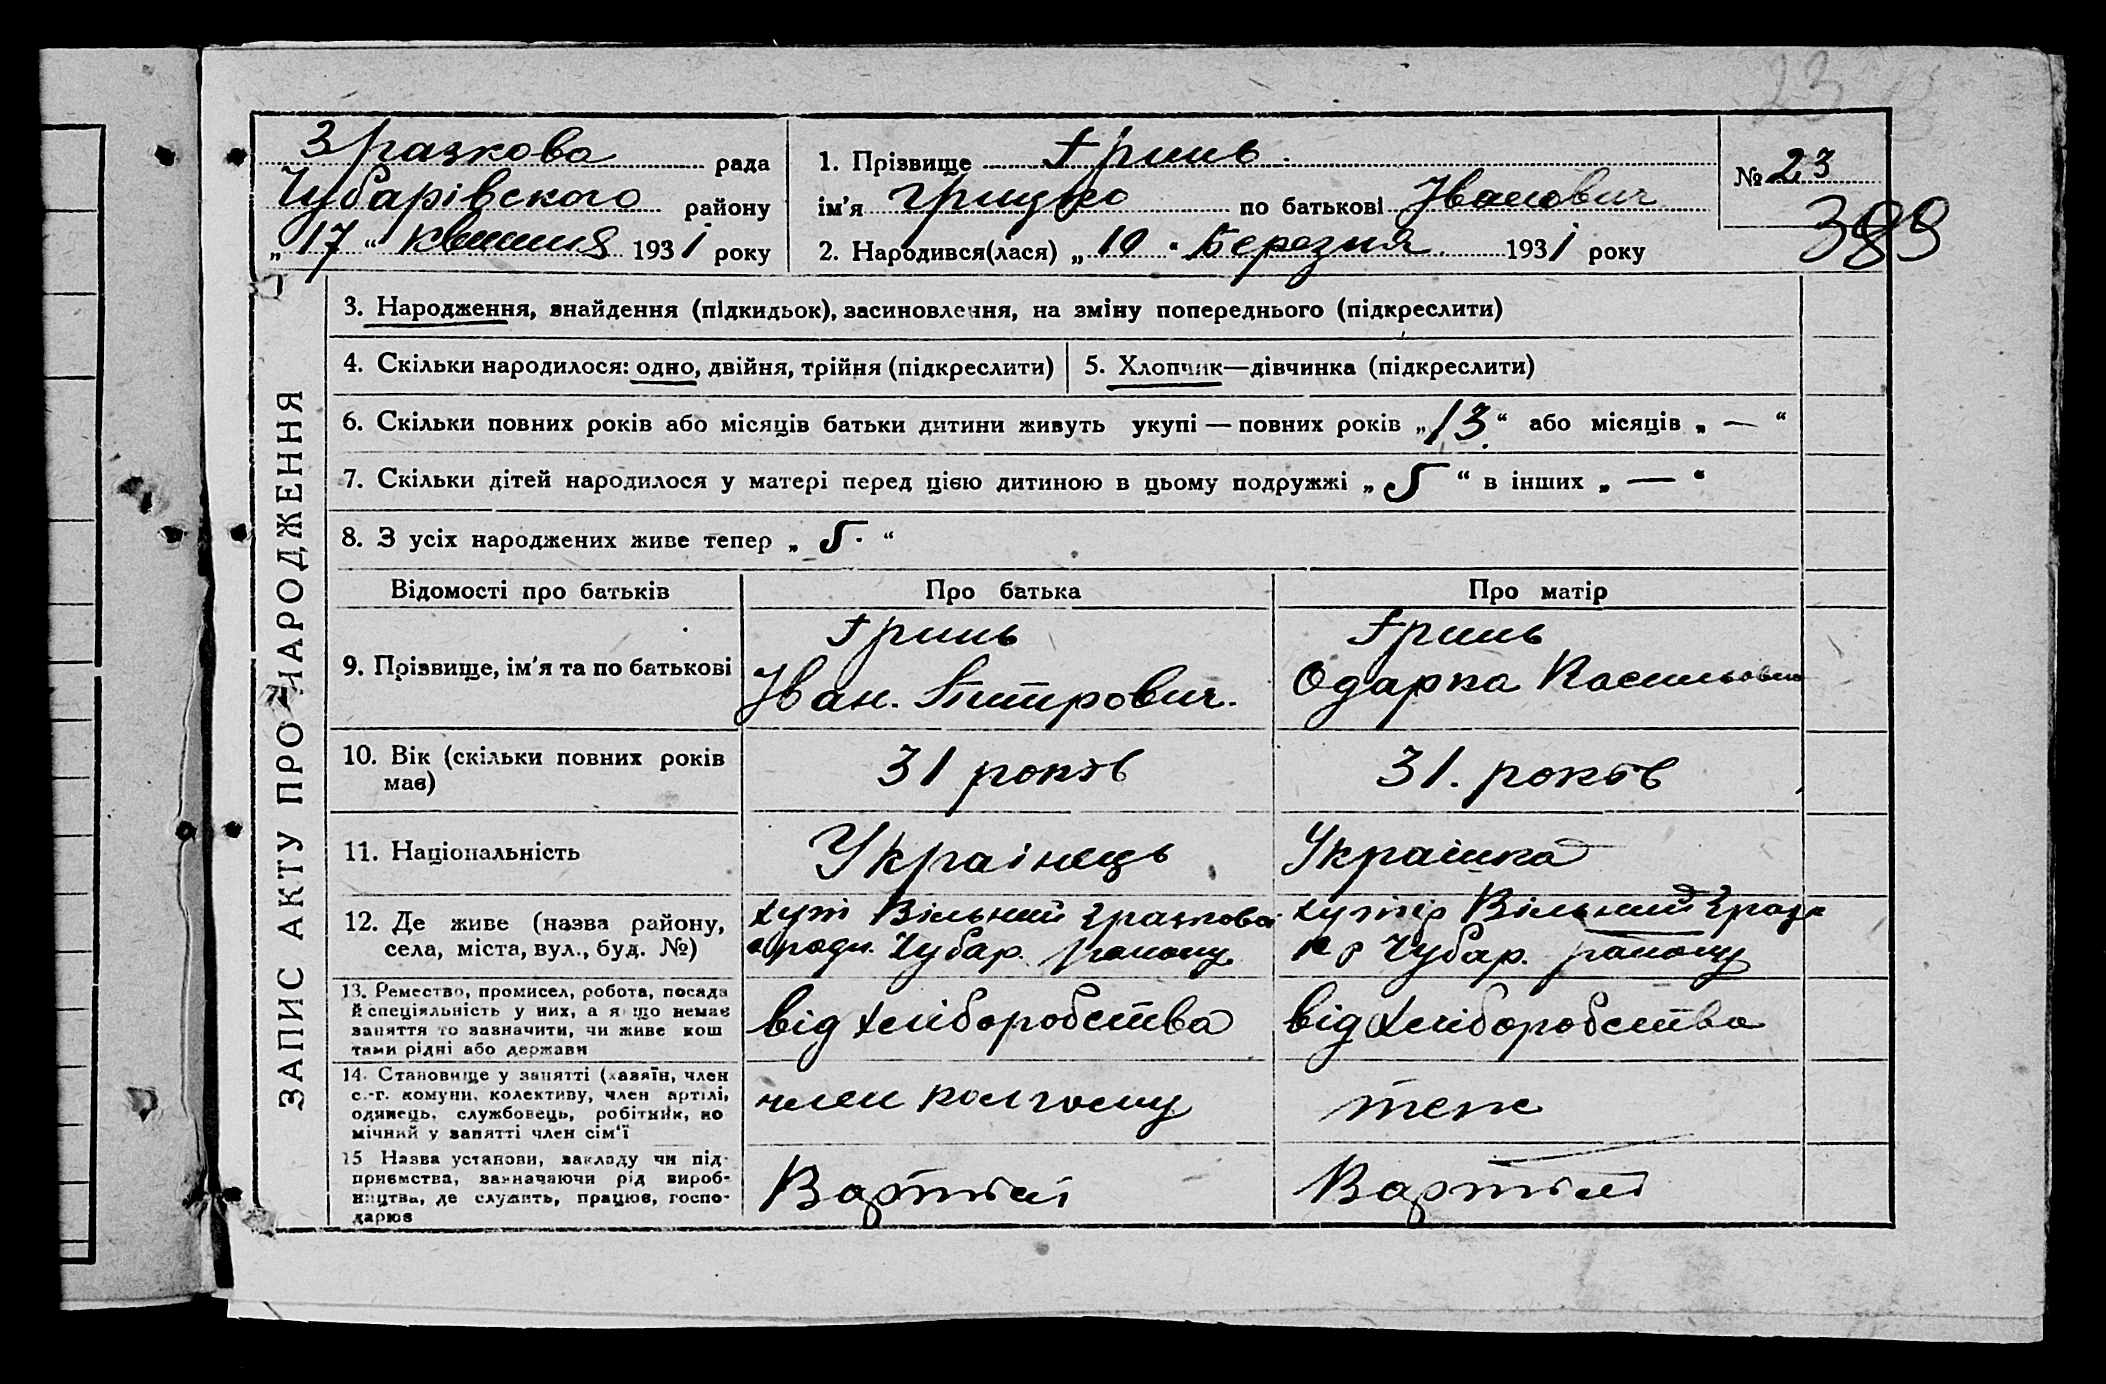 23
Зразкова рада
Чубарівського району
„17“ квітня 1931 року
1. Прізвище Гринь.
ім'я Грицько по батькові Іванович
2. Народився(лася) „10“ Березня 1931 року
№ 23
389
ЗАПИС АКТУ ПРО НАРОДЖЕННЯ
3. Народження, знайдення (підкидьок), засиновлення, на зміну попереднього (підкреслити)
4. Скільки народилося: одно, двійня, трійня (підкреслити)
5. Хлопчик—дівчинка (підкреслити)
6. Скільки повних років або місяців батьки дитини живуть укупі — повних років „13“ або місяців „—“
7. Скільки дітей народилося у матері перед цією дитиною в цьому подружжі „5“ в інших „—“
8. З усіх народжених живе тепер „5.“
Відомості про батьків
Про батька
Про матір
9. Прізвище, ім'я та по батькові
Гринь
Іван. Питрович.
Гринь
Одарка
10. Вік (скільки повних років
має)
31 років
31. років
11. Національність
Украінець
Украінка
12. Де живе (назва району,
села, міста, вул., буд. №)
хут Вільний Зразкової
ради. Чубар. району
хутір Вільний Зразк
Чубар. району
13. Ремество, промисел, робота, посада
й спеціяльність у них, а якщо немає
заняття то зазначити, чи живе кош
тами рідні або держави
від хліборобства
від хліборобства
14. Становище у занятті (хазяїн, член
с.-г. комуни, колективу, член артілі,
одинець, службовець, робітник, по
мічний у занятті член сім'ї
член колгоспу
теж
15 Назва установи, закладу чи під-
приємства, зазначаючи рід вироб-
ництва, де служить, працює, госпо-
дарює
Вартілі
Вартілі